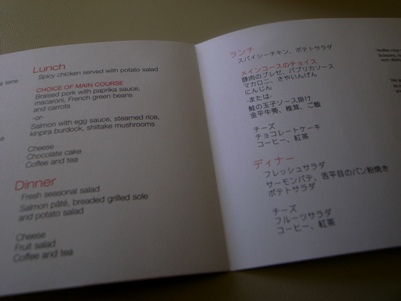 Lunch
Spicy chicken served with potato salad
CHOICE OF MAIN COURSE
Braised pork with paprika sauce,
macaroni, French green beans
and carrots
-or-
Salmon with egg sauce, steamed rice,
kinpira burdock, shiitake mushrooms
Cheese
Chocolate cake
Coffee and tea
Dinner
Fresh seasonal salad
Salmon pâté, breaded grilled sole
and potato salad
Cheese
Fruit salad
Coffee and tea
ランチ
スパイシーチキン、ポテトサラダ
メインコースのチョイス
豚肉のブレゼ、パプリカソース
マカロニ、さやいんげん
にんじん
-または-
鮭の玉子ソース掛け
金平牛蒡、椎茸、ご飯
チーズ
チョコレートケーキ
コーヒー、紅茶
ディナー
フレッシュサラダ
サーモンパテ、舌平目のパン粉焼き
ポテトサラダ
チーズ
フルーツサラダ
コーヒー、紅茶